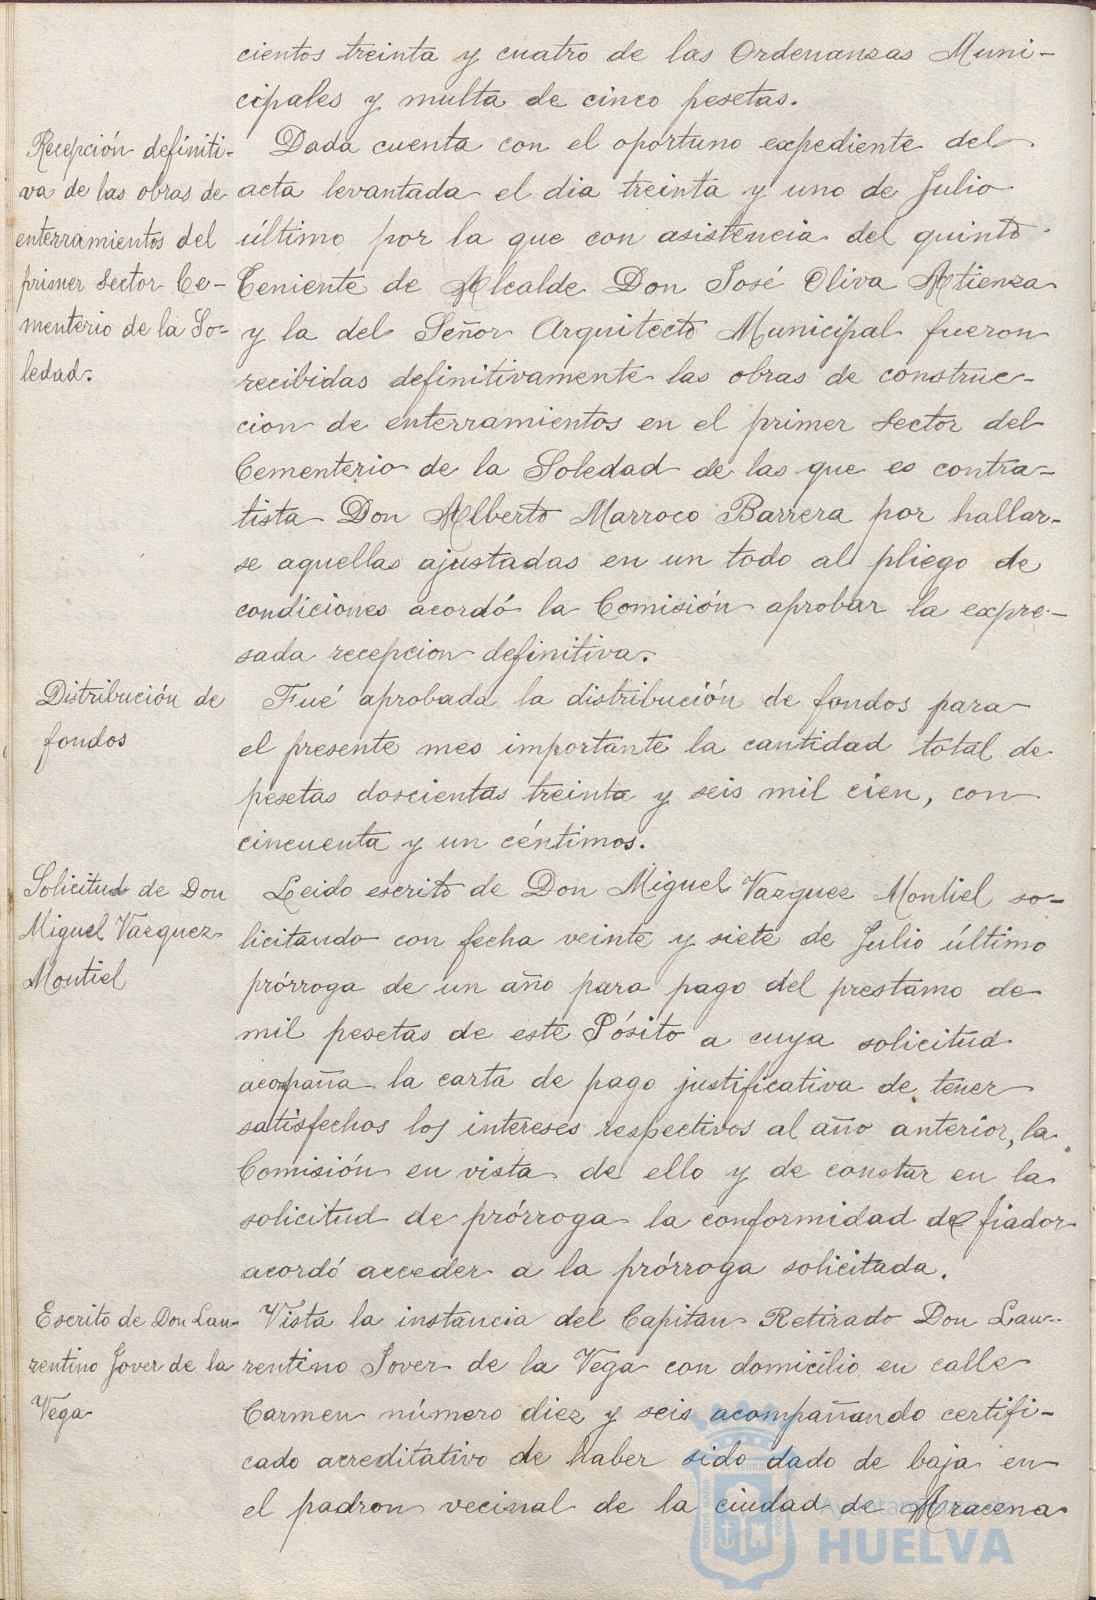 cientos treinta y cuatro de las Ordenanzas Muni-
cipales y multa de cinco pesetas.
Recepción definiti-
va de las obras de
enterramientos del
primer sector Ce-
menterio de la So-
ledad.
Dada cuenta con el oportuno expediente del
acta levantada el dia treinta y uno de Julio
último por la que con asistencia del quinto
Teniente de Alcalde Don José Oliva Atienza
y la del Señor Arquitecto Municipal fueron
recibidas definitivamente las obras de construc-
cion de enterramientos en el primer sector del
Cementerio de la Soledad de las que es contra-
tista Don Alberto Marroco Barrera por hallar-
se aquellas ajustadas en un todo al pliego de
condiciones acordó la Comisión aprobar la expre-
sada recepcion definitiva.
Distribución de
fondos
Fué aprobada la distribución de fondos para
el presente mes importante la cantidad total de
pesetas doscientas treinta y seis mil cien, con
cincuenta y un céntimos.
Solicitud de Don
Miguel Vazquez
Montiel
Leido escrito de Don Miguel Vazquez Montiel so-
licitando con fecha veinte y siete de Julio último
prórroga de un año para pago del prestamo de
mil pesetas de este Pósito a cuya solicitud
acompaña la carta de pago justificativa de tener
satisfechos los intereses respectivos al año anterior, la
Comisión en vista de ello y de constar en la
solicitud de prórroga la conformidad del fiador
acordó acceder a la prórroga solicitada.
Escrito de Don Lau-
rentino Jover de la
Vega
Vista la instancia del Capitan Retirado Don Lau-
rentino Jover de la Vega con domicilio en calle
Carmen número diez y seis acompañando certifi-
cado acreditativo de haber sido dado de baja en
el padron vecinal de la ciudad de Aracena
Ayuntamiento de
HUELVA